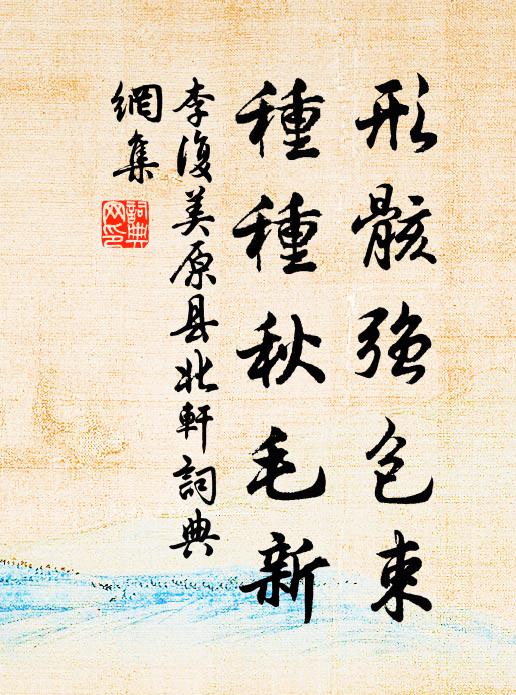 形骸强包束
種種秋毛新
李復美原县北軒詞典
網集
詞典
网印